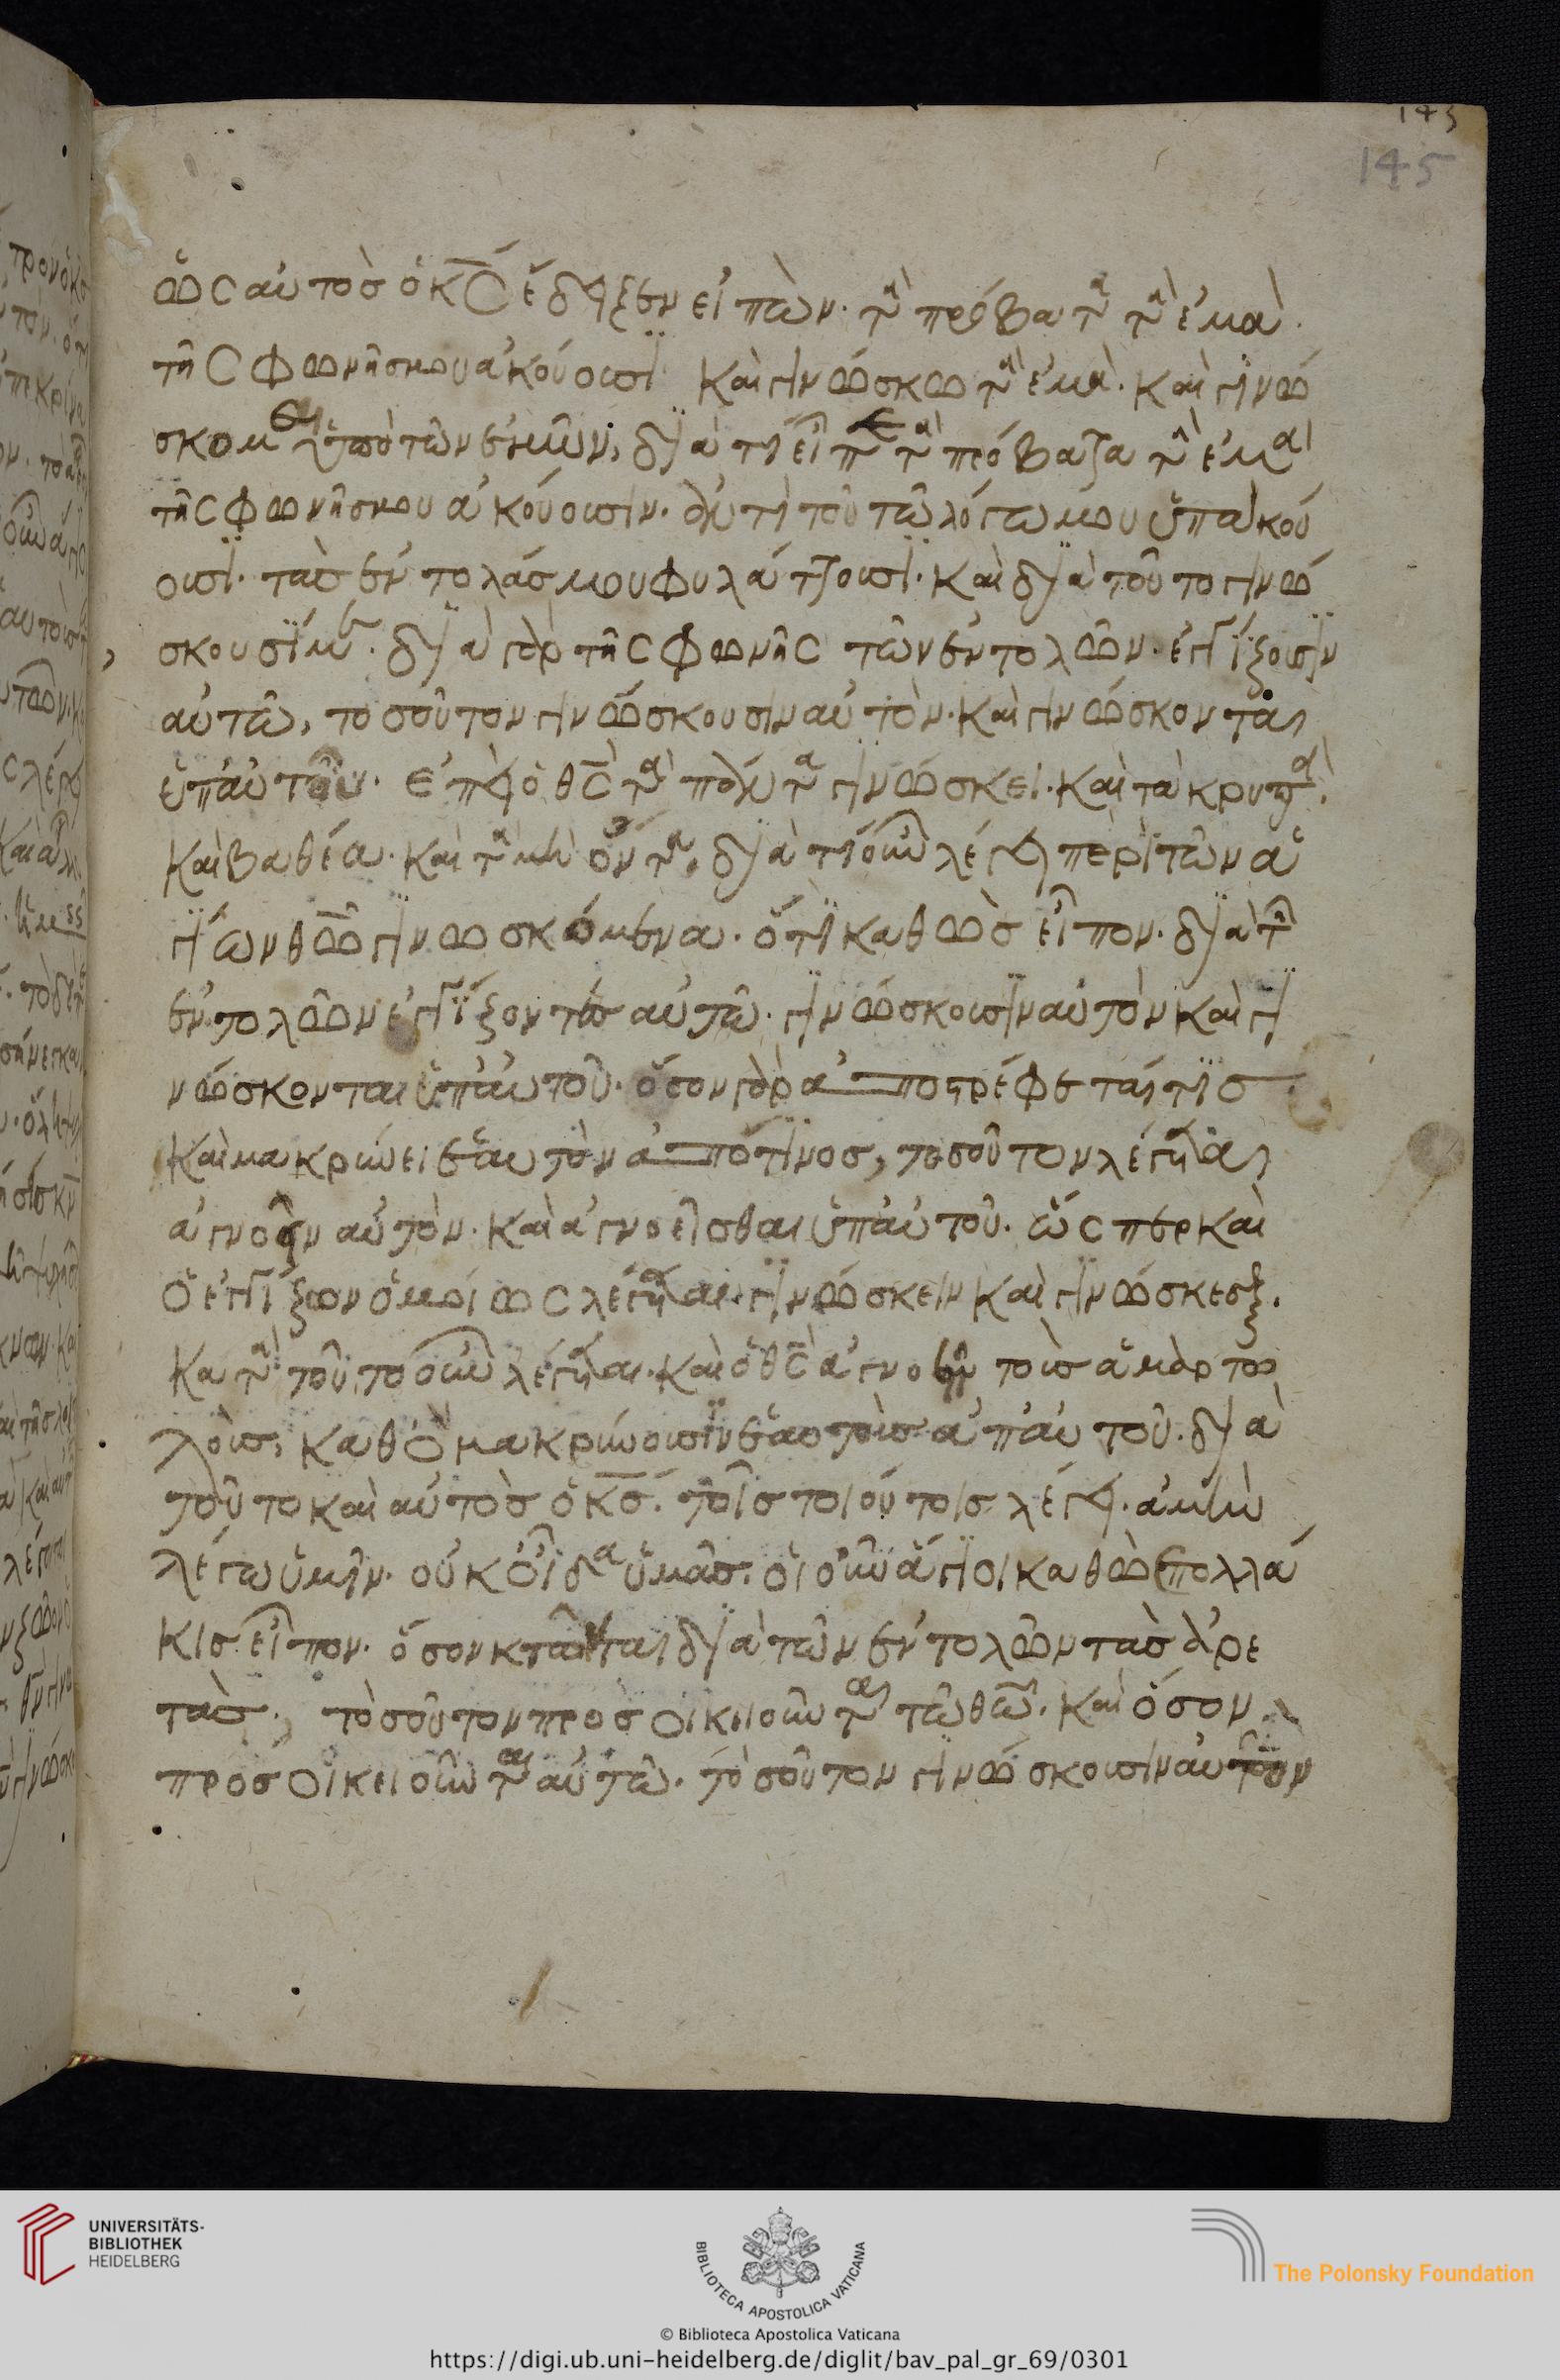 145
145
ὡς αὐτὸς ὁ κ̅ς̅ ἔδειξεν εἰπὼν· τὰ πρόβατα τὰ ἐμὰ·
τῆς φωνῆς μου ἀκούουσϊ καὶ γινώσκω τὰ ἐμὰ· καὶ γινώ
σκομαι ὑπὸ τῶν ἐμῶν, διὰ τί εἶπε τὰ πρόβατα τὰ ἐμὰ
τῆς φωνῆς μου ἀκούουσιν· ὅτι τοῦτῶ λόγω μου ὑπακού
ουσϊ· τὰς ἐντολάς μου φυλάττουσϊ· καὶ διὰ τοῦτο γινώ
σκουσϊ με· διὰ γὰρ τῆς φωνῆς τῶν ἐντολῶν· ἐγγίζουσϊν
αὐτῶ, τοσοῦτον γινώσκουσιν αὐτὸν· καὶ γινώσκονται
ὑπ' αὐτοῦ· ἐπεὶ ὁ θ̅ς̅ τὰ πάντα γινώσκει· καὶ τὰ κρυπτὰ·
καὶ βαθέα· καὶ τὰ μὴ ὄντα, διὰ τί οὖν λέγει περὶ τῶν ἁ
γίων θ̅ω̅ γινωσκόμενα· ὅτι καθὼς εἶπον· διὰ τῶν
ἐντολῶν ἐγγϊζοντες αὐτῶ· γινώσκουσϊν αὐτὸν καὶ γι
νώσκονται ὑπ' αὐτοῦ· ὅσον γὰρ ἀποστρέφεται τις
καὶ μακρύνει ἑαυτὸν ἀπό τινος, τοσοῦτον λέγεται
ἀγνοεῖν αὐτὸν· καὶ ἀγνοεῖσθαι ὑπ' αὐτοῦ· ὥσπερ καὶ
ὁ ἐγγίζων ὁμοίως λέγεται· γινώσκειν καὶ γινώσκεσθαι·
κατὰ τοῦτο οὖν λέγεται· καὶ ὁ θ̅ς̅ ἀγνοεῖν τοὺς ἁμαρτω
λοὺς, καθὸ μακρύνουσϊν ἑαυτοὺς ἀπ' αὐτοῦ· διὰ
τοῦτο καὶ αὐτὸς ὁ κ̅ς̅· τοῖς τοιούτοις λέγει· ἀμὴν
λέγω ὑμῖν· οὐκ οἶδα ὑμᾶς· οἱ οὖν ἅγιοι καθὼς πολλά
κις εἶπον· ὅσον κτῶνται διὰ τῶν ἐντολῶν τὰς ἀρε
τὰς, τοσοῦτον προσοικειοῦνται τῶ θ̅ω̅· καὶ ὅσον
προσοικειοῦνται αὐτῶ· τοσοῦτον γινώσκουσιν αὐτὸν
UNIVERSITÄTS-
BIBLIOTHEK
HEIDELBERG
BIBLIOTHECA APOSTOLICA VATICANA
The Polonsky Foundation
© Biblioteca Apostolica Vaticana
https://digi.ub.uni-heidelberg.de/diglit/bav_pal_gr_69/0301